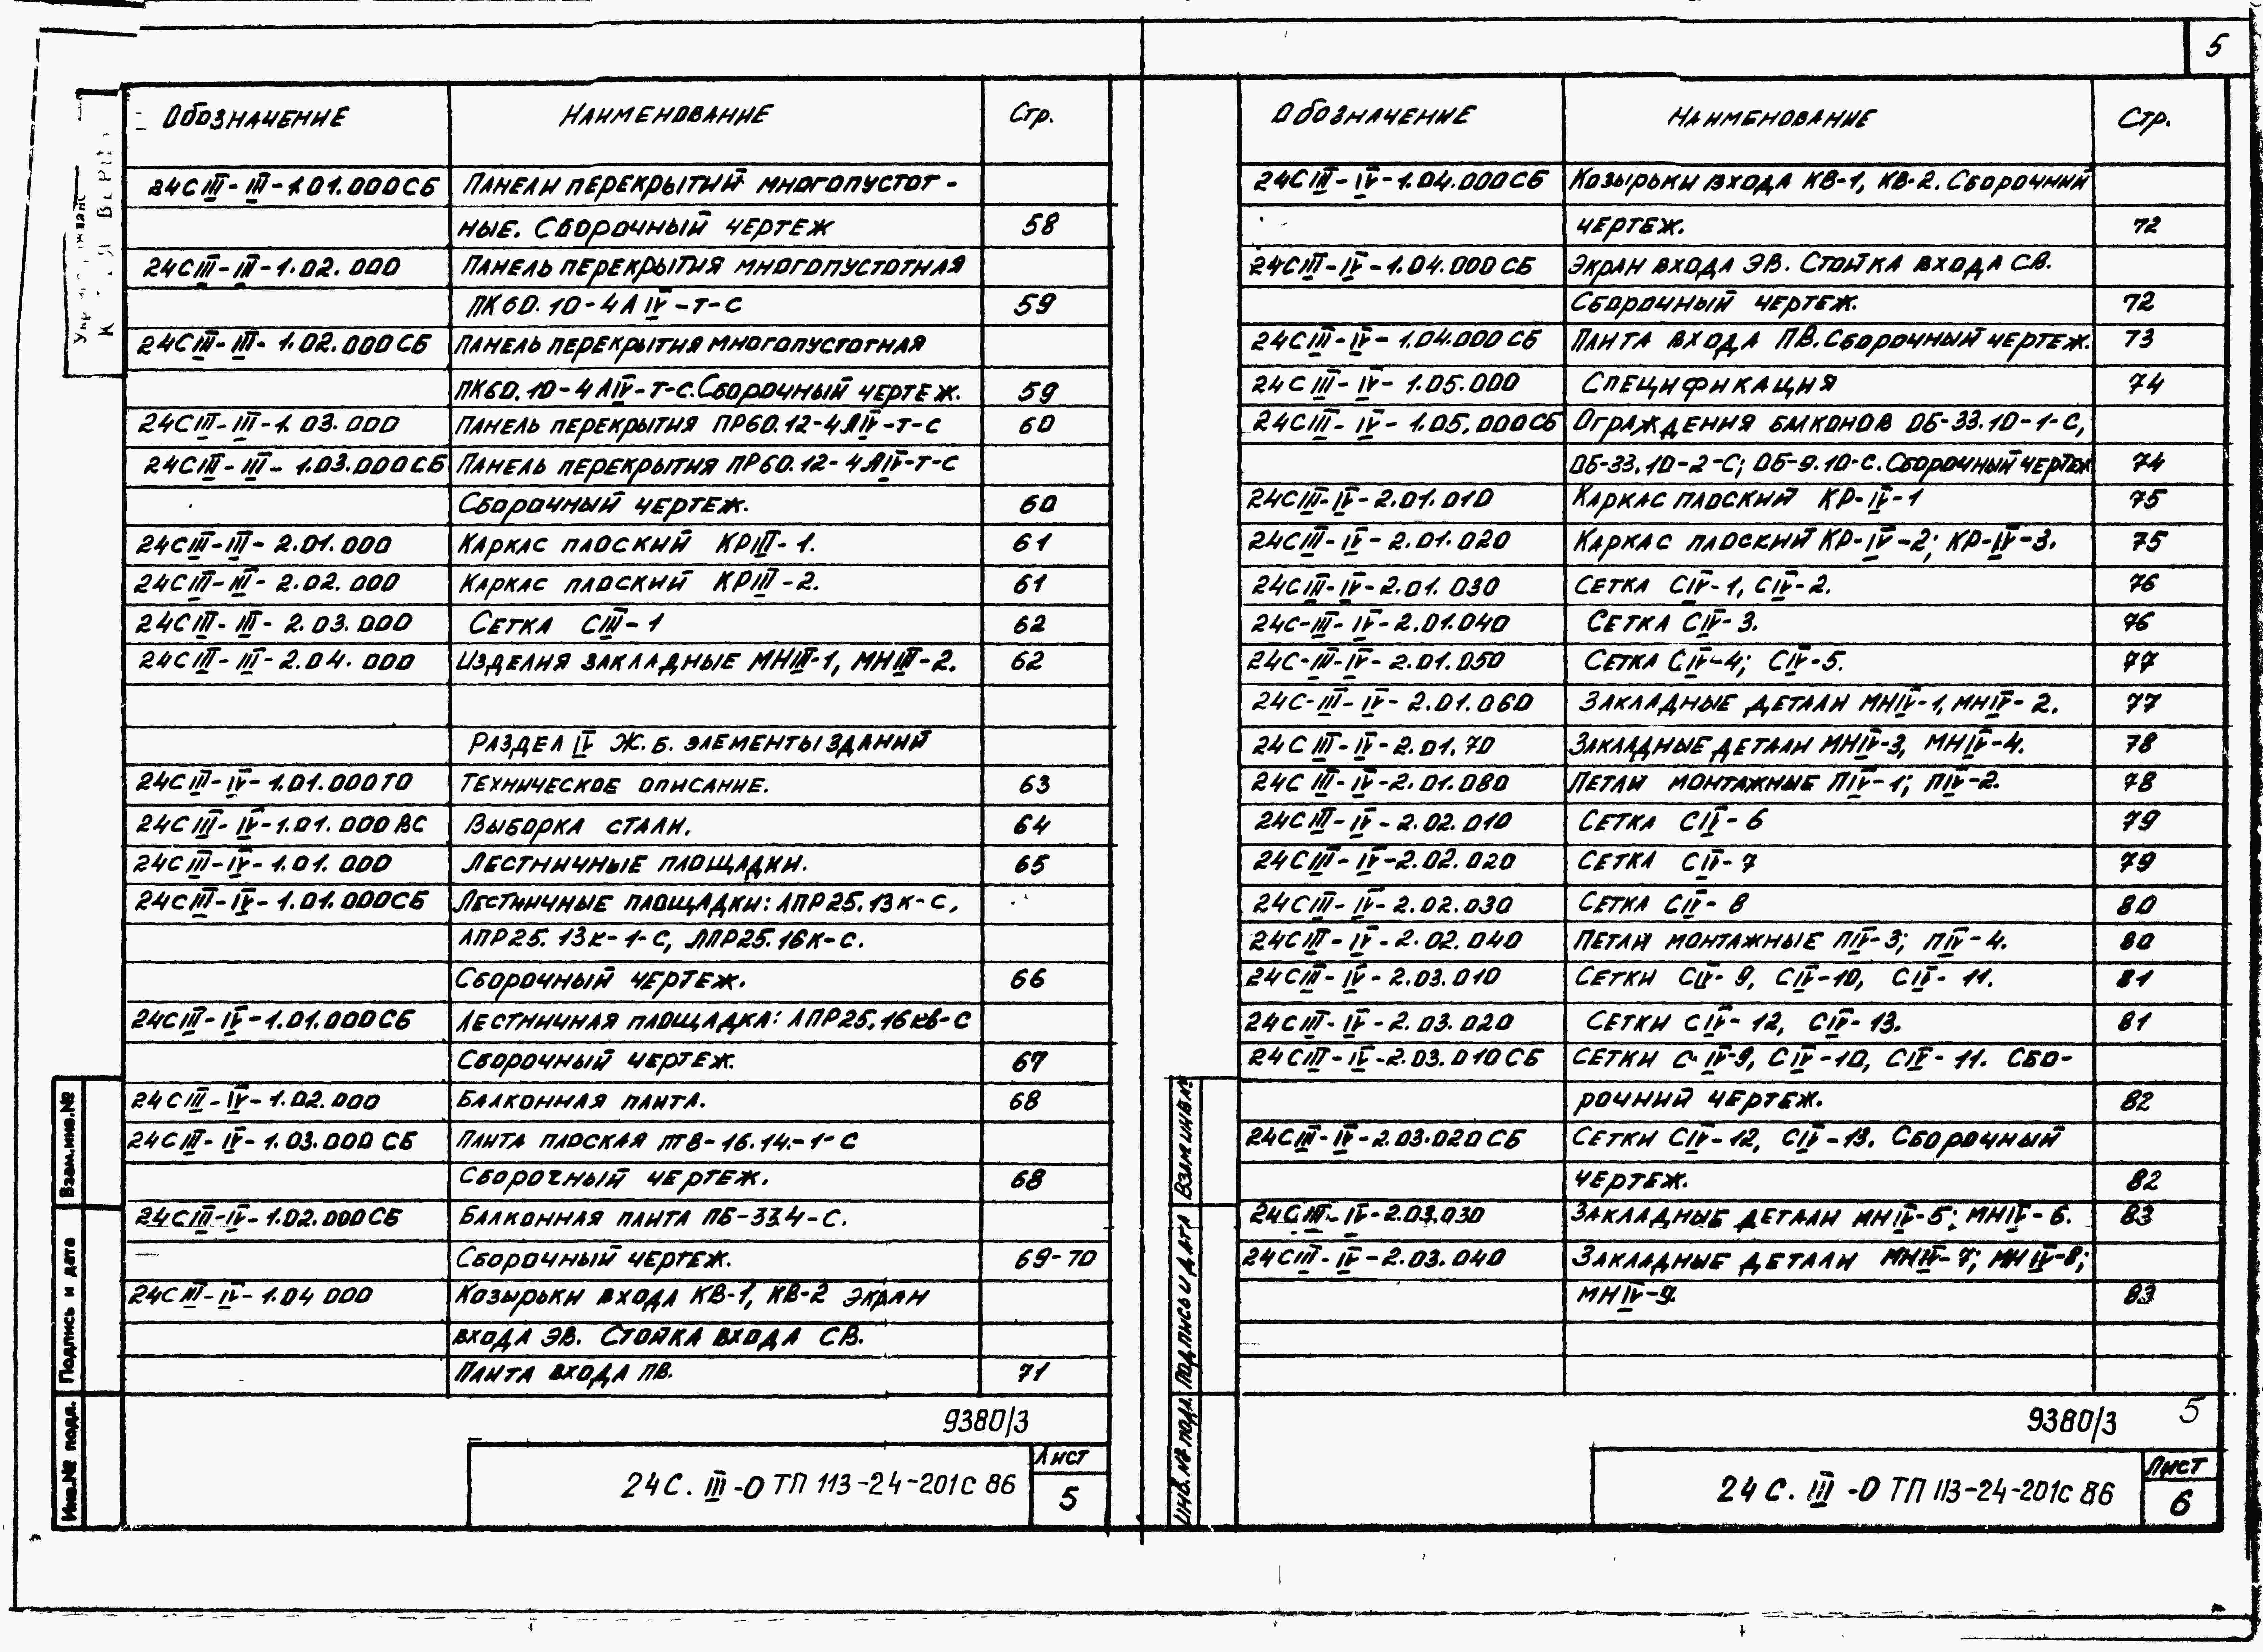 5
Обозначение Наименование Стр.
24СIII-III-1.01.000СБ Панели перекрытий многопустот-
ные. Сборочный чертеж 58
24СIII-III-1.02.000 Панель перекрытия многопустотная
ПК60.10-4АIV-т-с 59
24СIII-III-1.02.000СБ Панель перекрытия многопустотная
ПК60.10-4АIV-т-с.Сборочный чертеж. 59
24СIII-III-1.03.000 Панель перекрытия ПР60.12-4АIV-т-с 60
24СIII-III-1.03.000СБ Панель перекрытия ПР60.12-4АIV-т-с
Сборочный чертеж. 60
24СIII-III-2.01.000 Каркас плоский КРIII-1. 61
24СIII-III-2.02.000 Каркас плоский КРIII-2. 61
24СIII-III-2.03.000 Сетка СIII-1 62
24СIII-III-2.04.000 Изделия закладные МНIII-1, МНIII-2. 62
Раздел IV Ж.б. элементы зданий
24СIII-IV-1.01.000ТО Техническое описание. 63
24СIII-IV-1.01.000ВС Выборка стали. 64
24СIII-IV-1.01.000 Лестничные площадки. 65
24СIII-IV-1.01.000СБ Лестничные площадки: ЛПР25.13к-с,
ЛПР25.13к-1-с, ЛПР25.16к-с.
Сборочный чертеж. 66
24СIII-IV-1.01.000СБ Лестничная площадка: ЛПР25.16кв-с
Сборочный чертеж. 67
24СIII-IV-1.02.000 Балконная плита. 68
24СIII-IV-1.03.000 СБ Плита плоская пт8-16.14.-1-с
Сборочный чертеж. 68
24СIII-IV-1.02.000СБ Балконная плита ПБ-33.4-с.
Сборочный чертеж. 69-70
24СIII-IV-1.04 000 Козырьки входа КВ-1, КВ-2 экран
входа ЭВ. Стойка входа СВ.
Плита входа ПВ. 71
9380/3
24С. III-0 ТП 113-24-201с 86
Лист
5
Взам.инв.№
Подпись и дата
Инв.№ подл.
Обозначение Наименование Стр.
24СIII-IV-1.04.000СБ Козырьки входа КВ-1, КВ-2. Сборочный
чертеж. 72
24СIII-IV-1.04.000СБ Экран входа ЭВ. Стойка входа СВ.
Сборочный чертеж. 72
24СIII-IV-1.04.000СБ Плита входа ПВ.Сборочный чертеж. 73
24СIII-IV-1.05.000 Спецификация 74
24СIII-IV-1.05.000СБ Ограждения балконов ОБ-33.10-1-с,
ОБ-33.10-2-с; ОБ-9.10-с.Сборочный чертеж 74
24СIII-IV-2.01.010 Каркас плоский КР-IV-1 75
24СIII-IV-2.01.020 Каркас плоский КР-IV-2; КР-IV-3. 75
24СIII-IV-2.01.030 Сетка СIV-1, СIV-2. 76
24С-III-IV-2.01.040 Сетка СIV-3. 76
24С-III-IV-2.01.050 Сетка СIV-4; СIV-5. 77
24С-III-IV-2.01.060 Закладные детали МНIV-1, МНIV-2. 77
24СIII-IV-2.01.70 Закладные детали МНIV-3, МНIV-4. 78
24СIII-IV-2.01.080 Петли монтажные ПIV-1; ПIV-2. 78
24СIII-IV-2.02.010 Сетка СIV-6 79
24СIII-IV-2.02.020 Сетка СIV-7 79
24СIII-IV-2.02.030 Сетка СIV-8 80
24СIII-IV-2.02.040 Петли монтажные ПIV-3; ПIV-4. 80
24СIII-IV-2.03.010 Сетки СIV-9, СIV-10, СIV-11. 81
24СIII-IV-2.03.020 Сетки СIV-12, СIV-13. 81
24СIII-IV-2.03.010СБ Сетки С-IV-9, СIV-10, СIV-11. Сбо-
рочний чертеж. 82
24СIII-IV-2.03.020СБ Сетки СIV-12, СIV-13. Сборочный
чертеж. 82
24СIII-IV-2.03.030 Закладные детали МНIV-5; МНIV-6. 83
24СIII-IV-2.03.040 Закладные детали МНIV-7; МНIV-8;
МНIV-9. 83
9380/3
5
24С. III-0 ТП 113-24-201с 86
Лист
6
Взам инв.№
Подпись и дата
Инв.№ подл.